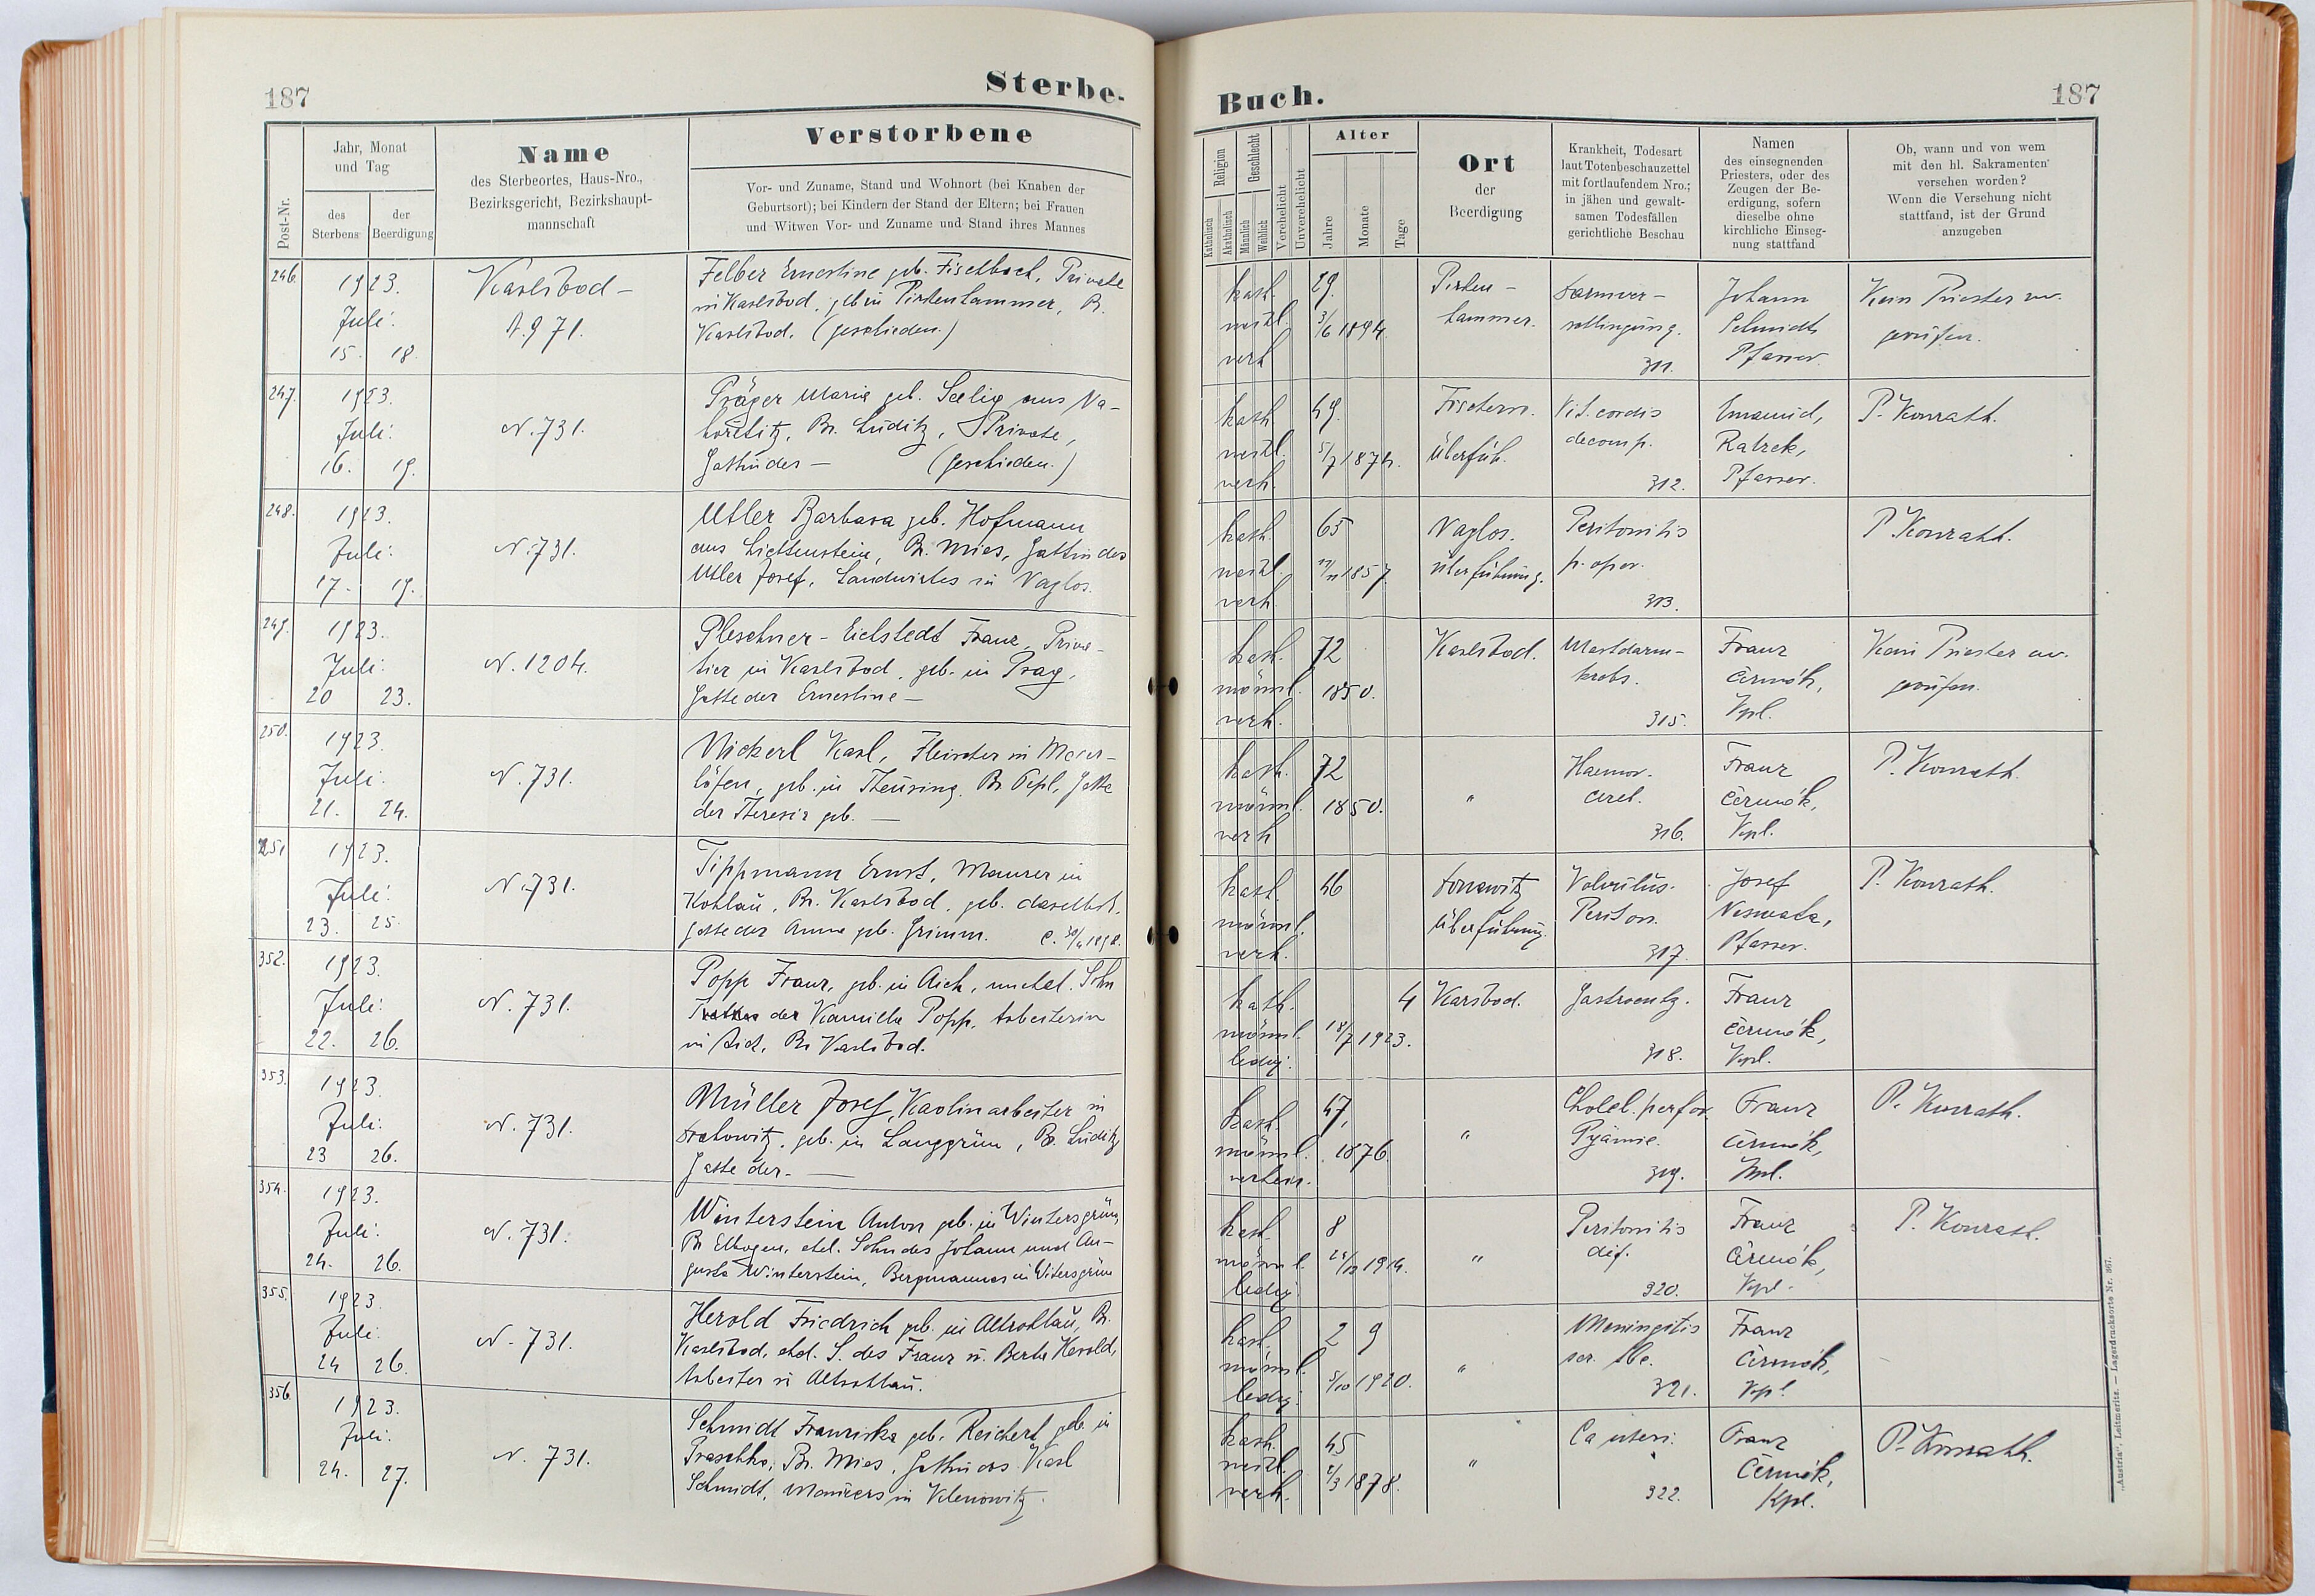 187
Sterbe-
Post-Nr.
Jahr, Monat
und Tag
des
Sterbens
der
Beerdigung
Name
des Sterbeortes, Haus-Nro.,
Bezirksgericht, Bezirkshaupt-
mannschaft
Verstorbene
Vor- und Zuname, Stand und Wohnort (bei Knaben der
Geburtsort); bei Kindern der Stand der Eltern; bei Frauen
und Witwen Vor- und Zuname und Stand ihres Mannes
246.
1923.
Juli.
15. 18.
Karlsbad –
A. 971.
Felber Ernestine geb. Fischbach, Private
in Karlsbad, geb in Pirkenhammer, B.
Karlsbad. (geschieden.)
247.
1923.
Juli.
16. 19.
N. 731.
Präger Maria geb. Seelig aus Na-
horetitz, Bz. Luditz, Private,
Gattin des — (geschieden.)
248.
1923.
Juli.
17. 19.
N. 731.
Utler Barbara geb. Hofmann
aus Lichtenstein, Bz. Mies, Gattin des
Utler Josef, Landwirtes in Naglos.
249.
1923.
Juli.
20 23.
N. 1204.
Pleschner-Eichstedt Franz, Priva-
tier in Karlsbad, geb. in Prag,
Gatte der Ernestine —
250.
1923.
Juli.
21. 24.
N. 731.
Nickerl Karl, Fleischer in Maier-
höfen, geb. in Theusing, Bz Tepl, Gatte
der Theresia geb. —
251
1923.
Juli.
23. 25.
N. 731.
Tippmann Ernst, Maurer in
Kohlau, Bz. Karlsbad, geb. daselbst,
Gatte der Anna geb. Grimm.
352.
1923.
Juli.
22. 26.
N. 731.
Popp Franz, geb. in Aich, unehel. Sohn
der Kamilla Popp, Arbeiterin
in Aich, Bz Karlsbad.
353.
1923.
Juli.
23 26.
N. 731.
Müller Josef, Kaolinarbeiter in
geb. in Langgrün, Bz. Luditz
Gatte der —
354.
1923.
Juli.
24. 26.
N. 731.
Winterstein Anton geb. in Wintersgrün,
Bz Elbogen, ehel. Sohn des Johann und Au-
gusta Winterstein, Bergmannes in Witersgrün
355.
1923.
Juli.
24 26.
N. 731.
Herold Friedrich geb. in Altrohlau, Bz.
Karlsbad, ehel. S. des Franz u. Berta Herold,
Arbeiter in Altrohlau.
356.
1923.
Juli.
24. 27.
N. 731.
Schmidt Franziska geb. Reichert, geb. in
Bz. Mies, Gattin des Karl
Schmidt, Maurers in
Buch.
187
Religion
Katholisch
Akatholisch
Geschlecht
Männlich
Weiblich
Verehelicht
Unverehelicht
Alter
Jahre
Monate
Tage
Ort
der
Beerdigung
Krankheit, Todesart
laut Totenbeschauzettel
mit fortlaufendem Nro.;
in jähen und gewalt-
samen Todesfällen
gerichtliche Beschau
Namen
des einsegnenden
Priesters, oder des
Zeugen der Be-
erdigung, sofern
dieselbe ohne
kirchliche Einseg-
nung stattfand
Ob, wann und von wem
mit den hl. Sakramenten
versehen worden?
Wenn die Versehung nicht
stattfand, ist der Grund
anzugeben
kath. 29.
weibl. 3/6 1894.
verh
Pirken-
hammer.
Darmver-
schlingung.
311.
Johann
Schmidt
Pfarrer
Kein Priester an-
gerufen.
kath. 49.
weibl. 5/7 1874.
verh.
Fischern.
Überfüh.
Vit. cordis
decomp.
312.
Emanuel,
Pfarrer.
P. Konrath.
kath. 65
weibl. 1857.
verh.
Naglos.
Überführung.
Peritonitis
p. oper.
313.
P Konrath.
kath. 72
männl. 1850.
verh.
Karlsbad.
Mastdarm-
krebs.
315.
Franz
Čermák,
Kpl.
Kein Priester an-
gerufen.
kath. 72
männl. 1850.
verh
"
Haemor.
cereb.
316.
Franz
Čermák,
Kpl.
P. Konrath.
kath. 46
männl.
verh.
Überführung.
Volvulus.
Periton.
317.
Josef
Pfarrer.
P. Konrath.
kath. 4
männl. 18/7 1923.
ledig.
Karsbad.
318.
Franz
Čermák,
Kpl.
kath. 47,
männl. 1876.
"
Cholel. perfor.
Pyämie.
319.
Franz
Čermák,
Kpl.
P. Konrath.
kath. 8
männl. 1914.
ledig.
"
Peritonitis
dif.
320.
Franz
Čermák,
Kpl.
P. Konrath.
kath. 2 9
männl. 5/10 1920.
ledig.
"
Meningitis
321.
Franz
Čermák,
Kpl.
kath. 45
weibl. 2/3 1878.
verh.
"
Ca uteri.
322.
Franz
Čermák,
Kpl.
P. Konrath.
„Austria“, Leitmeritz. — Lagerdrucksorte Nr. 867.